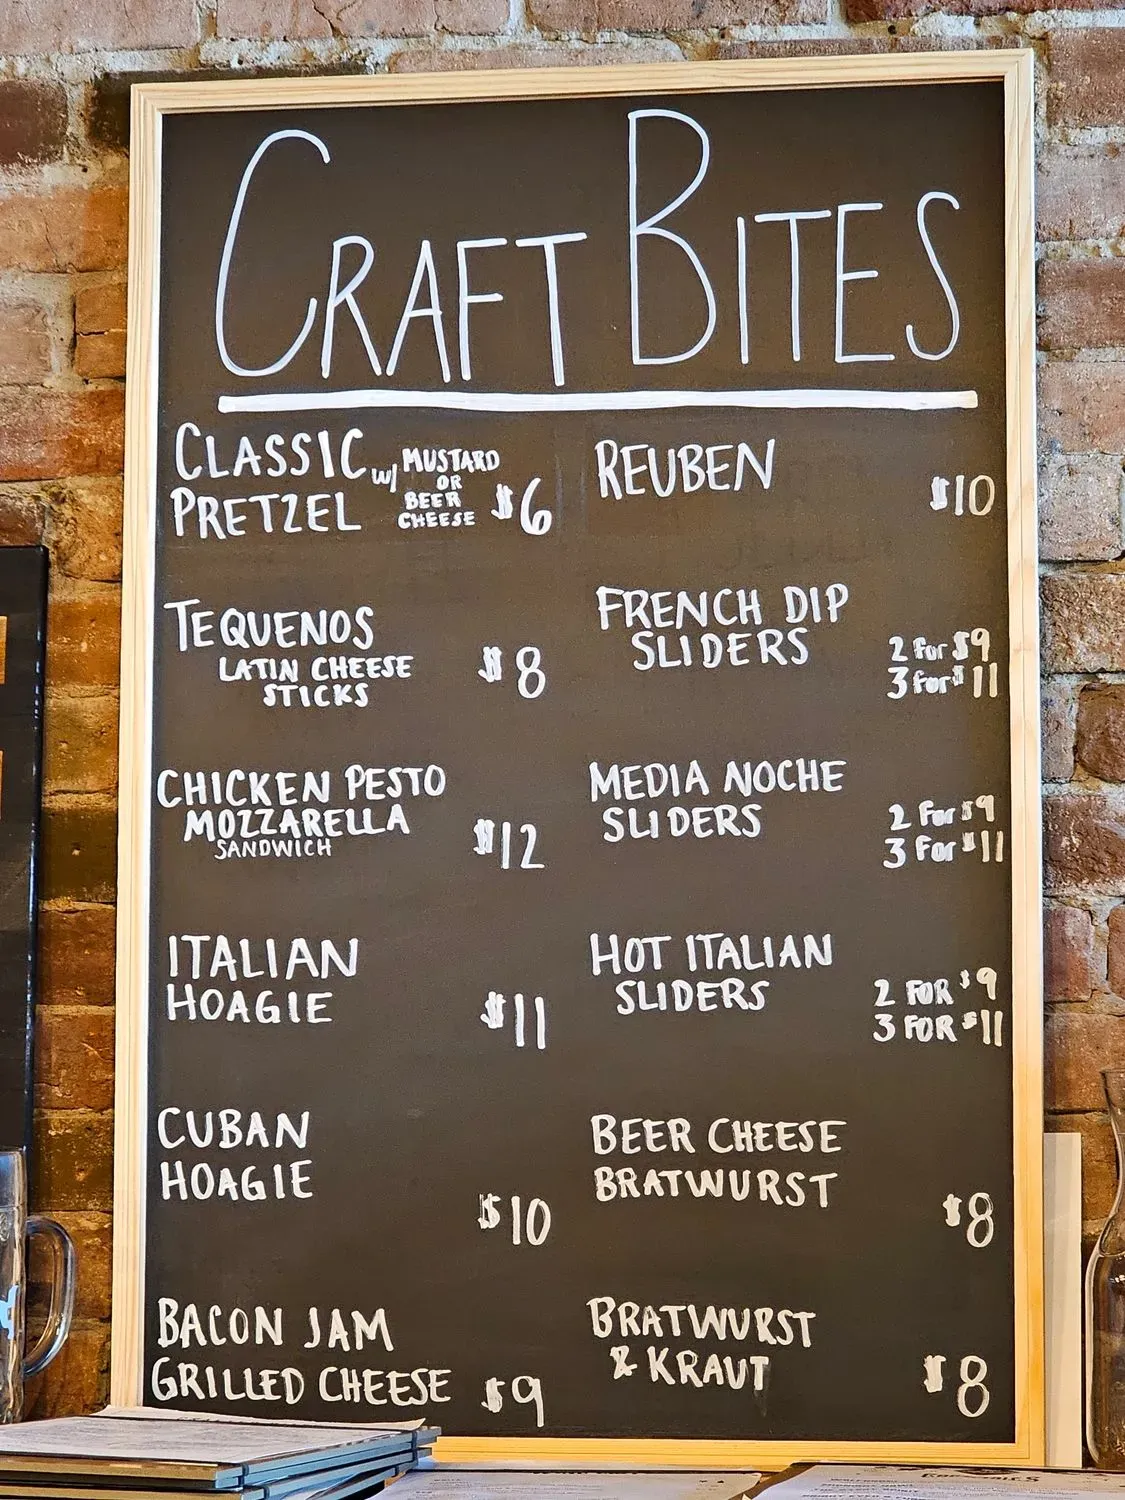 CRAFT BITES
CLASSIC
PRETZEL
w/ MUSTARD
OR
BEER
CHEESE
$6
TEQUENOS
LATIN CHEESE
STICKS
$8
CHICKEN PESTO
MOZZARELLA
SANDWICH
$12
ITALIAN
HOAGIE
$11
CUBAN
HOAGIE
$10
BACON JAM
GRILLED CHEESE
$9
REUBEN
$10
FRENCH DIP
SLIDERS
2 for $9
3 for $11
MEDIA NOCHE
SLIDERS
2 For $9
3 For $11
HOT ITALIAN
SLIDERS
2 FOR $9
3 FOR $11
BEER CHEESE
BRATWURST
$8
BRATWURST
& KRAUT
$8